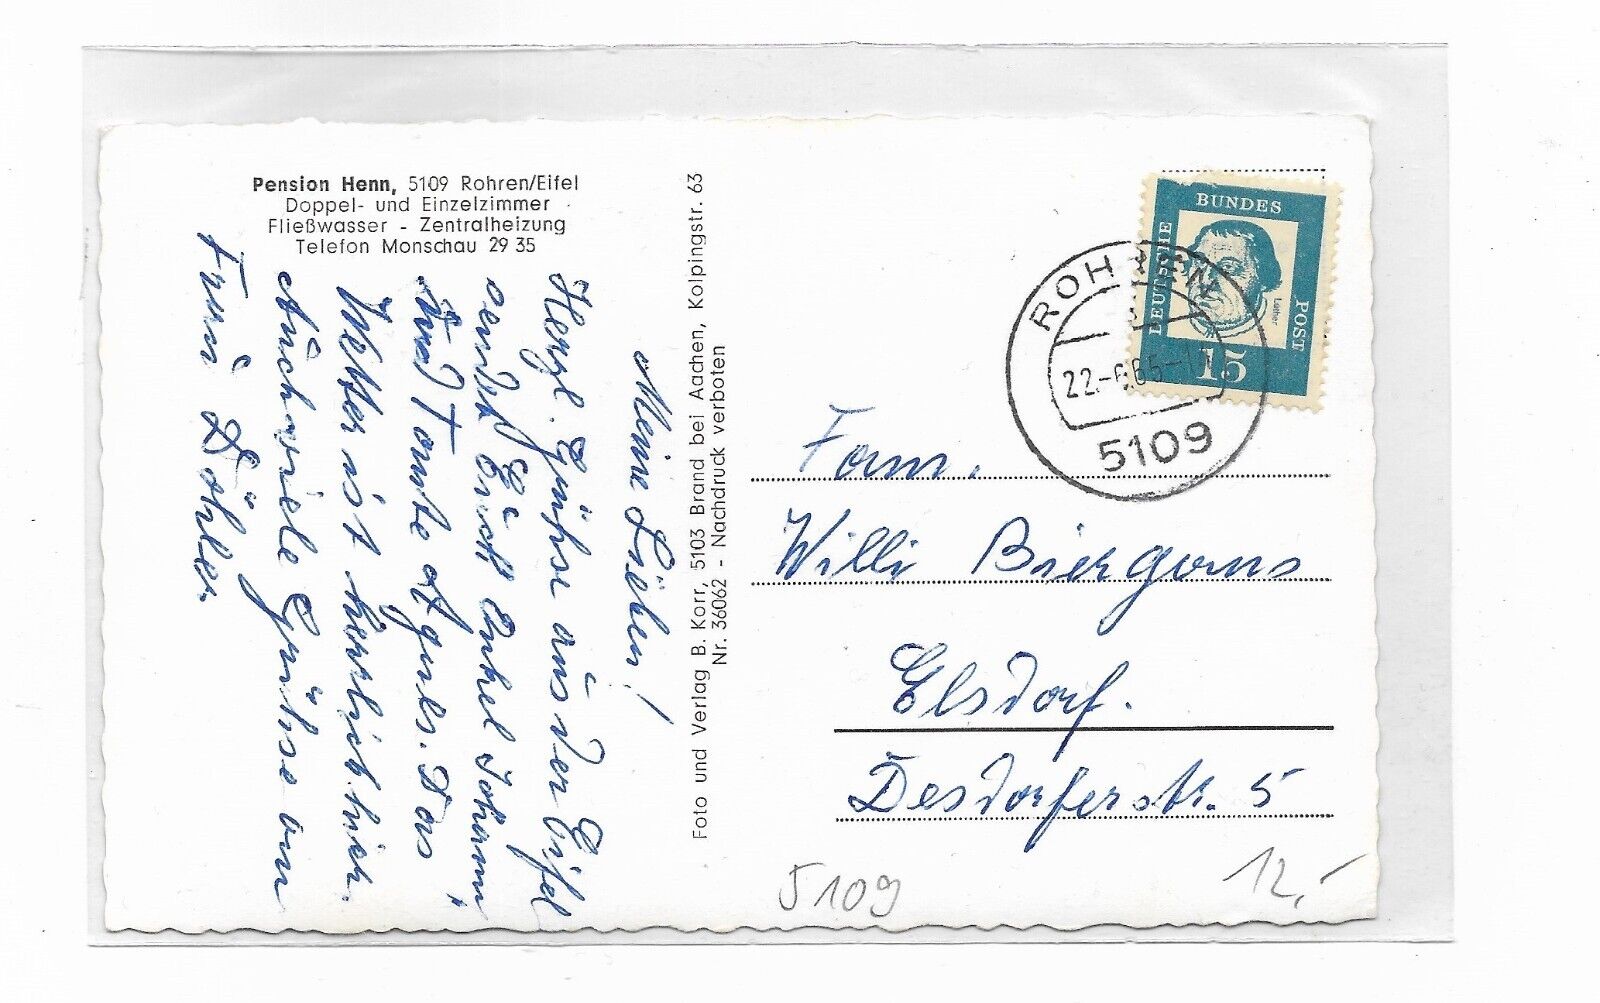 Pension Henn, 5109 Rohren/Eifel
Doppel- und Einzelzimmer
Fließwasser - Zentralheizung
Telefon Monschau 29 35
Meine Lieben!
Herzl. Grüße aus der Eifel
sendet Euch Onkel Johann
und Tante Agnes. Das
Wetter ist herrlich hier.
Auch viele Grüße von
Frau Döhler.
Foto und Verlag B. Korr, 5103 Brand bei Aachen, Kolpingstr. 63
Nr. 36062 - Nachdruck verboten
DEUTSCHE
BUNDES
POST
Luther
15
ROHREN
22.-6.65-1
5109
Fam.
Willi Biergans
Elsdorf.
Desdorferstr. 5
5109
12,-